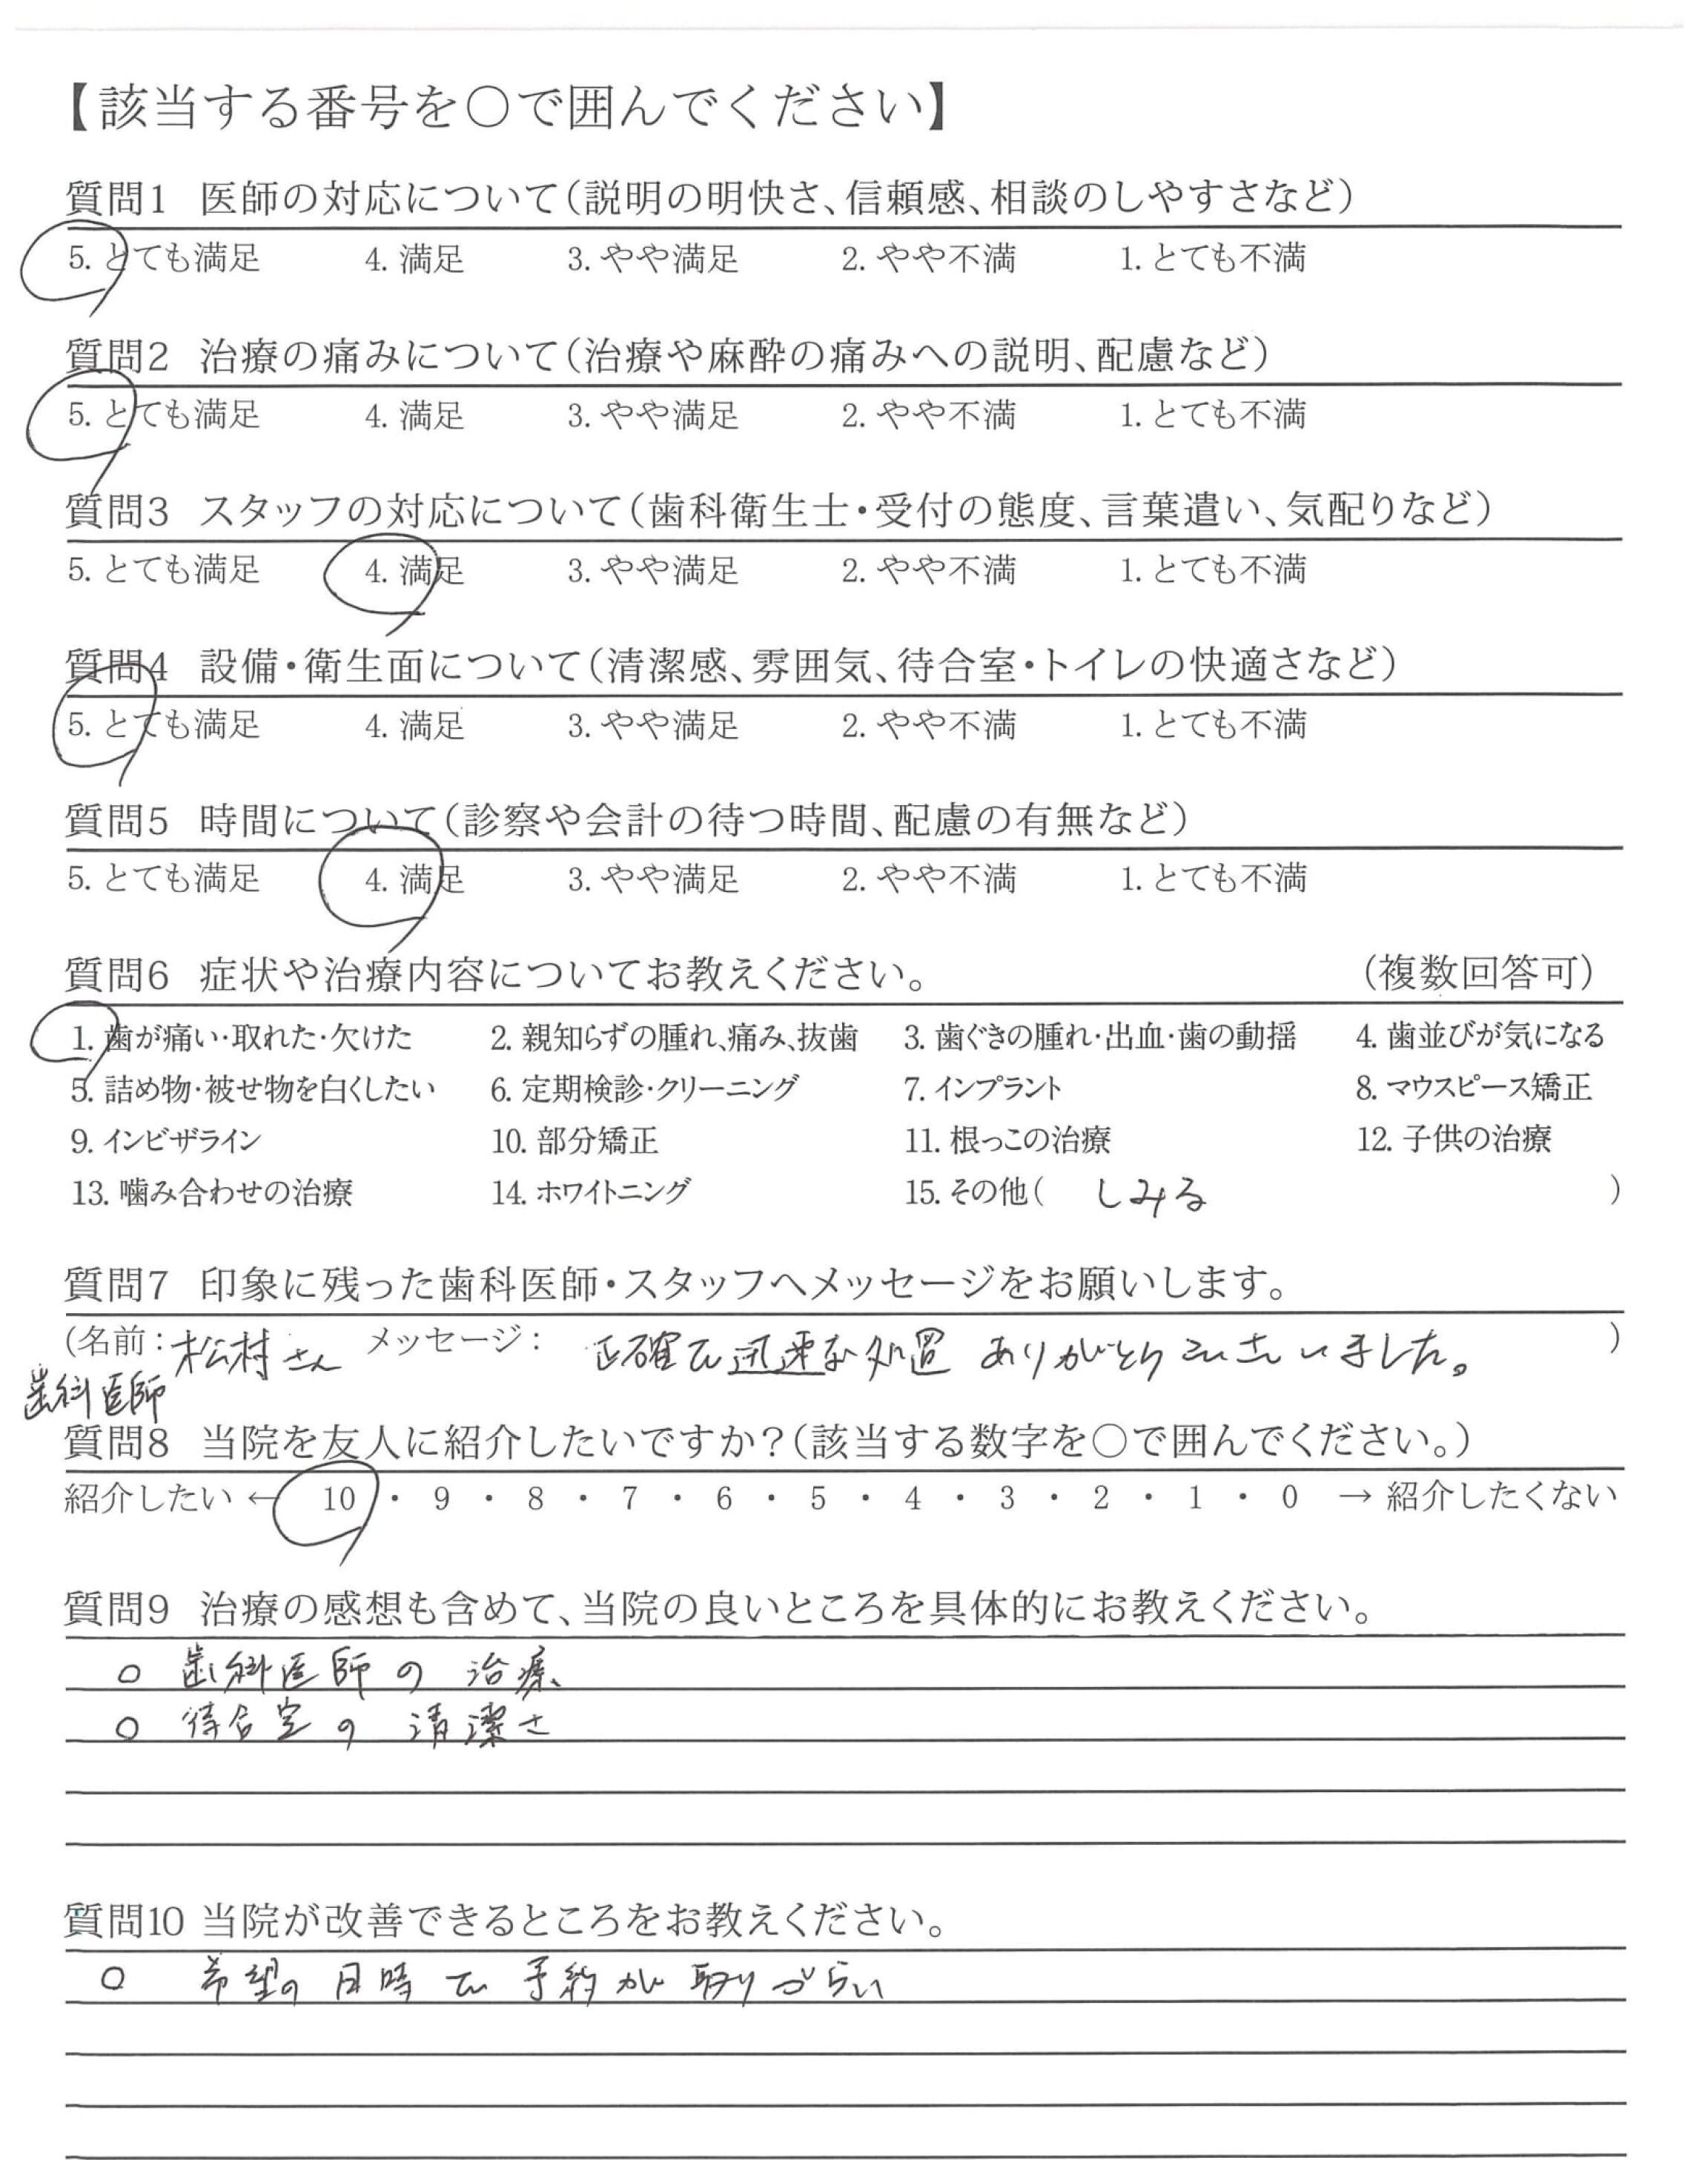 【該当する番号を○で囲んでください】
質問1 医師の対応について(説明の明快さ、信頼感、相談のしやすさなど)
5. とても満足 4. 満足 3. やや満足 2. やや不満 1. とても不満
質問2 治療の痛みについて(治療や麻酔の痛みへの説明、配慮など)
5. とても満足 4. 満足 3. やや満足 2. やや不満 1. とても不満
質問3 スタッフの対応について(歯科衛生士・受付の態度、言葉遣い、気配りなど)
5. とても満足 4. 満足 3. やや満足 2. やや不満 1. とても不満
質問4 設備・衛生面について(清潔感、雰囲気、待合室・トイレの快適さなど)
5. とても満足 4. 満足 3. やや満足 2. やや不満 1. とても不満
質問5 時間について(診察や会計の待つ時間、配慮の有無など)
5. とても満足 4. 満足 3. やや満足 2. やや不満 1. とても不満
質問6 症状や治療内容についてお教えください。 (複数回答可)
1. 歯が痛い・取れた・欠けた 2. 親知らずの腫れ、痛み、抜歯 3. 歯ぐきの腫れ・出血・歯の動揺 4. 歯並びが気になる
5. 詰め物・被せ物を白くしたい 6. 定期検診・クリーニング 7. インプラント 8. マウスピース矯正
9. インビザライン 10. 部分矯正 11. 根っこの治療 12. 子供の治療
13. 噛み合わせの治療 14. ホワイトニング 15. その他( しみる )
質問7 印象に残った歯科医師・スタッフへメッセージをお願いします。
(名前: 松村さん メッセージ: 正確で迅速な処置 ありがとうございました。 )
歯科医師
質問8 当院を友人に紹介したいですか?(該当する数字を○で囲んでください。)
紹介したい ← 10 ・ 9 ・ 8 ・ 7 ・ 6 ・ 5 ・ 4 ・ 3 ・ 2 ・ 1 ・ 0 → 紹介したくない
質問9 治療の感想も含めて、当院の良いところを具体的にお教えください。
○ 歯科医師の治療
○ 待合室の清潔さ
質問10 当院が改善できるところをお教えください。
○ 希望の日時で予約が取りづらい